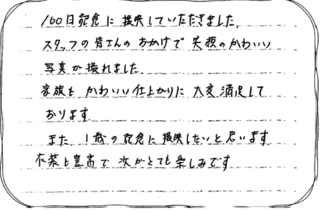 100日記念に撮影していただきました
スタッフの皆さんのおかげで笑顔のかわいい
写真が撮れました
家族も かわいい仕上がりに 大変満足して
おります
また 1歳の記念に撮影したいと思います
衣装も豊富で 次がとても楽しみです